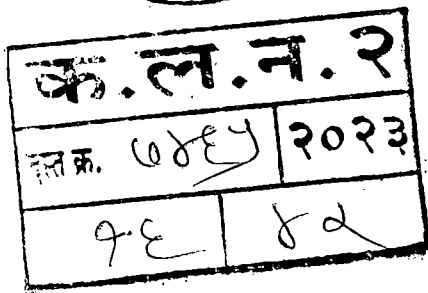 क.ल.न.२
दस्त क्र. ७४६५ २०२३
१६ ४२